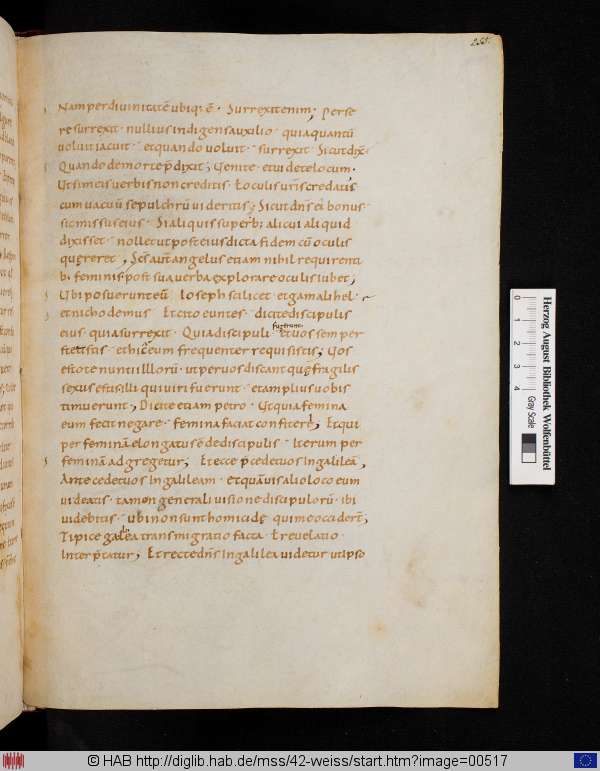 255.
Nam per divinitatē ubiq; ē. Surrexit enim; Per se
re surrexit. nullius indigens auxilio. quia quantū
voluit iacuit. et quando voluit. surrexit. Sicut dix̄.
Quando de morte p̄dixit; Venite et videte locum.
Ut si meis verbis non creditis. t oculis ur̄is credatis
cum vacuū sepulchrū videritis; Sicut dn̄s
si aliquis superb; alicui aliquid
dixisset. nollet ut post eius dicta fidem cū oculis
quęreret; Sc̄s aut̄ angelus etiam nihil requirenti
b; feminis post sua verba explorare oculis iubet;
Ubi posuerunt eū. Ioseph scilicet et gamalihel.
et nichodemus. Et cito euntes. dicite discipulis
eius. quia surrexit. Quia discipuli fugerunt. et uos semper
stetistis et hic eum frequenter requisistis; Vos
estote nuntii illorū. ut per uos discant quę fragilis
sexus estis. illi qui viri fuerunt. et amplius vobis
timuerunt; Dicite etiam petro. Ut quia femina
eum fecit negare. femina faciat confiteri; Et qui
per feminā elongatus ē de discipulis. Iterum per
feminā adgregetur; Et ecce p̄cedet vos in galileā;
Antecedet vos in galileam. et quāvis alio loco eum
videatis. tamen generali visione discipulorū. ibi
videbitis. ubi non sunt homicidę qui me occiderēt;
Tipice galilea transmigratio facta. t revelatio.
Interp̄tatur; Et recte dn̄s in galilea videtur ut ipso
0 1 2 3 4
Gray Scale
Herzog August Bibliothek Wolfenbüttel
© HAB http://diglib.hab.de/mss/42-weiss/start.htm?image=00517